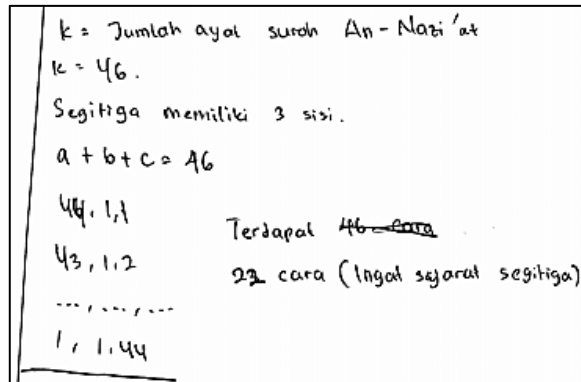 k = Jumlah ayat surah An-Nazi'at
k = 46.
Segitiga memiliki 3 sisi.
a + b + c = 46
44, 1, 1
43, 1, 2
..., ..., ...
1, 1, 44
Terdapat 46 cara
22 cara (Ingat syarat segitiga)